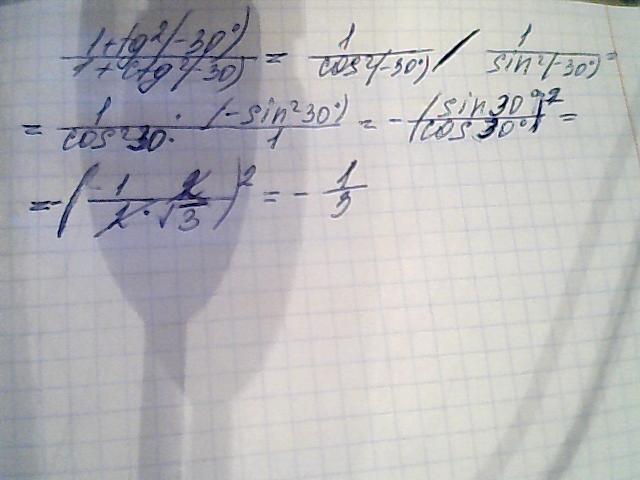 (1+tg²(-30°))/(1+ctg²(-30)) = 1/cos²(-30°) / 1/sin²(-30°) =
= 1/cos²30° · (-sin²30°)/1 = -(sin30°/cos30°)² =
= -(1/2 · 2/√3)² = - 1/3